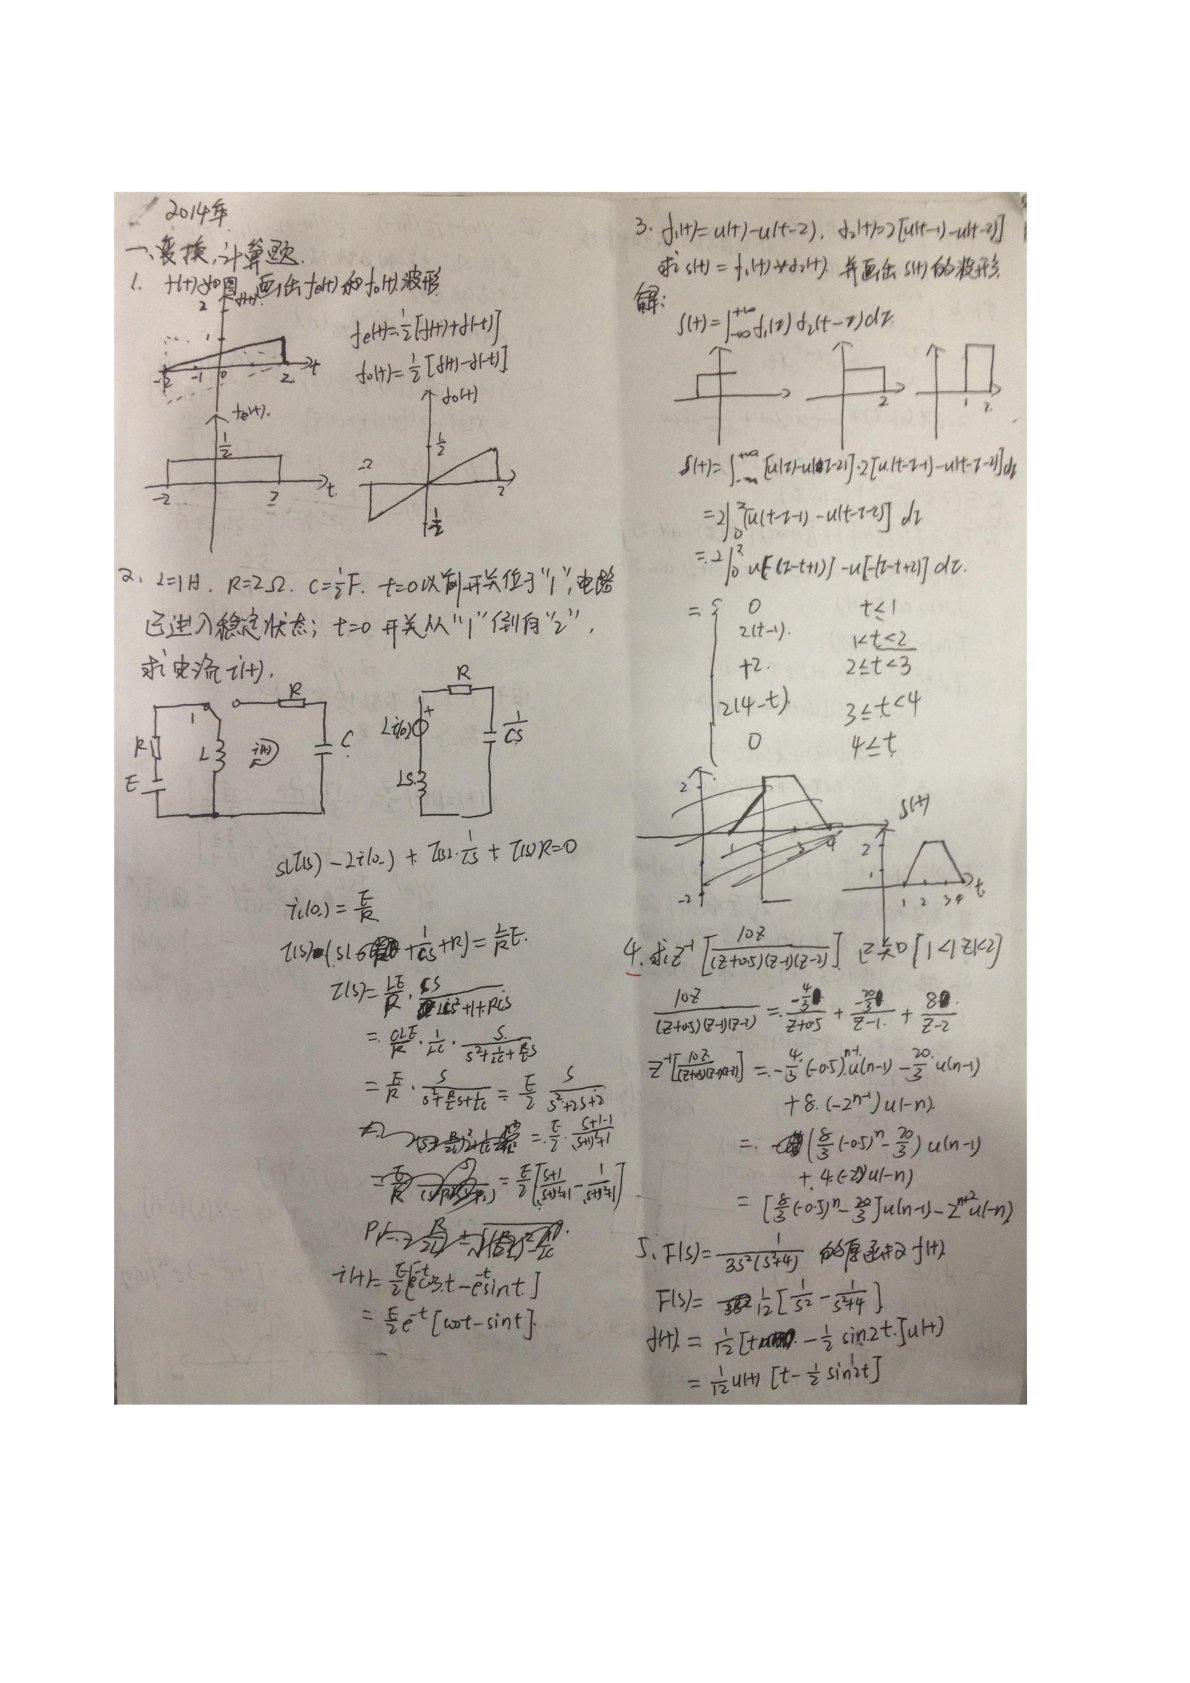 2014年
一、变换,计算题
1. f(t)如图,画出fe(t)和fo(t)波形
f(t)
2
1
-2 -1 0 2 t
fe(t)=½[f(t)+f(-t)]
fo(t)=½[f(t)-f(-t)]
fe(t)
1/2
-2 2 t
fo(t)
1/2
-2 2
1/2
2、L=1H. R=2Ω. C=½F. t=0以前开关位于"1",电路
已进入稳定状态; t=0 开关从"1"倒向"2",
求电流 i(t).
R
1
R L i(t) C
E
R
+
Li(0)
1/CS
LS
SLI(s) - Li(0-) + I(s)·1/CS + I(s)R=0
iL(0-) = E/R
I(s)(SL + 1/CS + R) = L/R E.
I(s)= LE/R · CS/(LCS²+1+RCS)
= CLE/R · 1/LC · S/(S²+1/LC+R/L S)
= E/R · S/(S²+R/L S+1/LC) = E/2 S/(S²+2S+2)
= E/2 · (S+1-1)/((S+1)²+1)
= E/2 [(S+1)/((S+1)²+1) - 1/((S+1)²+1)]
i(t)= E/2[e^-t cos t - e^-t sin t]
= E/2 e^-t [cos t - sin t].
3. f1(t)=u(t)-u(t-2), f2(t)=2[u(t-1)-u(t-2)]
求s(t) = f1(t)*f2(t) 并画出 s(t) 的波形
解:
s(t)=∫_{-∞}^{+∞} f1(τ) f2(t-τ)dτ.
2
1 2
s(t)=∫_{-∞}^{+∞} [u(τ)-u(τ-2)]·2[u(t-τ-1)-u(t-τ-2)]dτ
=2∫_0^2 [u(t-τ-1)-u(t-τ-2)] dτ
=2∫_0^2 u[-(τ-t+1)]-u[-(τ-t+2)] dτ.
= { 0 t≤1
2(t-1). 1<t<2
+2. 2≤t<3
2(4-t) 3≤t<4
0 4≤t
2
1 3 4
-2
s(t)
2
1
1 2 3 4 t
4. 求Z⁻¹[10Z/((Z+0.5)(Z-1)(Z-2))] 已知[1<|Z|<2]
10Z/((Z+0.5)(Z-1)(Z-2)) = -4/3/(Z+0.5) + -20/3/(Z-1) + 8/(Z-2)
Z⁻¹[10Z/((Z+0.5)(Z-1)(Z-2))] = -4/3·(-0.5)^{n-1}·u(n-1) - 20/3·u(n-1)
+8·(-2^{n-1})u(-n).
= (8/3(-0.5)^n - 20/3) u(n-1)
+4(-2^n)u(-n)
= [8/3(-0.5)^n - 20/3]u(n-1) - 2^{n+2}u(-n)
5、F(s)= 1/(3S²(S²+4)) 的原函数f(t).
F(s)= 1/12[1/S² - 1/(S²+4)]
f(t) = 1/12[t - ½ sin2t]u(t)
= 1/12 u(t) [t - ½ sin2t]